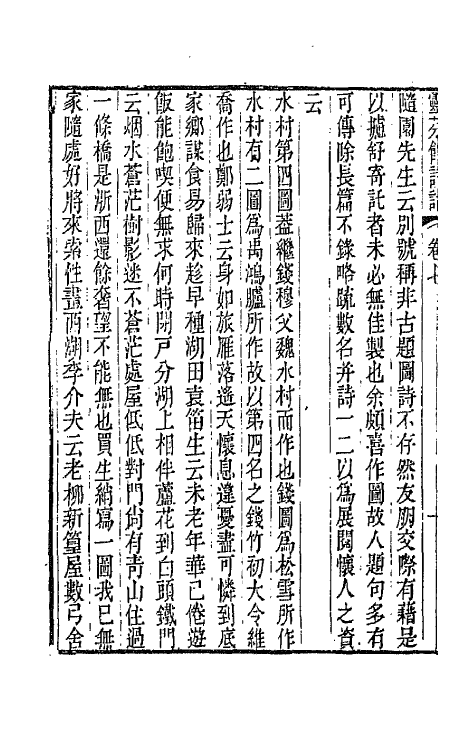 靈芬館詩話 卷七
隨園先生云別號稱非古題圖詩不存然友朋交際有藉是
以攄舒寄託者未必無佳製也余頗喜作圖故人題句多有
可傳除長篇不錄略疏數名幷詩一二以爲展閱懷人之資
云
水村第四圖葢繼錢穆父魏水村而作也錢圖爲松雪所作
水村有二圖爲禹鴻臚所作故以第四名之錢竹初大令維
喬作也鄭弱士云身如旅雁落遥天懷息違憂盡可憐到底
家鄉謀食易歸來趁早種湖田袁笛生云未老年華已倦遊
飯能飽喫便無求何時閉戸分湖上相伴蘆花到白頭鐵門
云烟水蒼茫樹影迷不蒼茫處屋低低對門尙有靑山住過
一條橋是浙西還餘奢望不能無也買生綃寫一圖我已無
家隨處好將來索性畫西湖李介夫云老柳新篁屋數弓舍